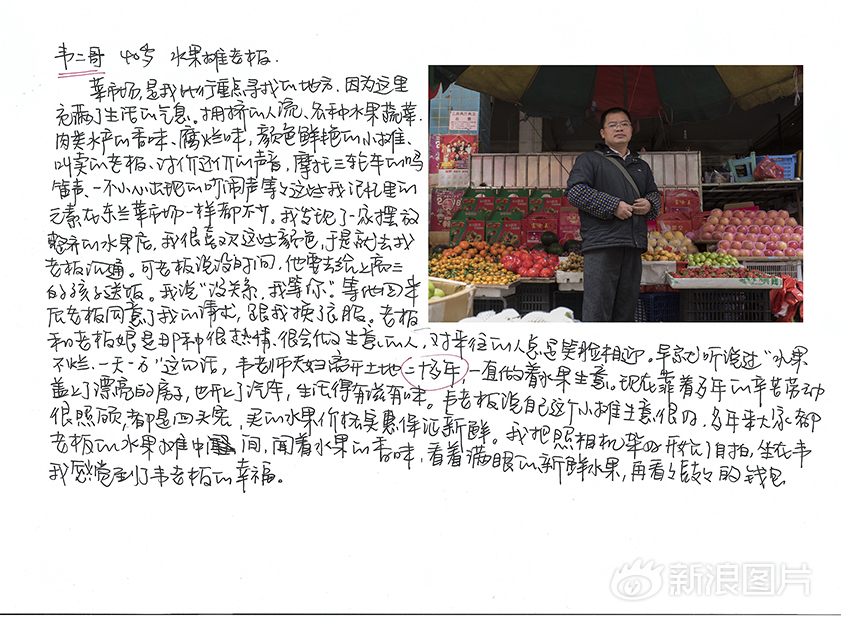 韦二哥 40岁 水果摊老板.
菜市场是我此行重点寻找的地方,因为这里
充满了生活的气息。拥挤的人流、各种水果蔬菜、
肉类水产的香味、腐烂味,颜色鲜艳的小摊、
叫卖的老板、讨价还价的声音,摩托三轮车的鸣
笛声、一不小心出现的吵闹声等等这些我记忆里的
元素在东兰菜市场一样都不少。我发现了一家摆放
整齐的水果店,我很喜欢这些颜色,于是就去找
老板沟通。可老板说没时间,他要去给上高三
的孩子送饭。我说“没关系,我等你”。等他回来
后老板同意了我的请求,跟我换了衣服。老板
和老板娘是那种很热情、很会做生意的人,对来往的人总是笑脸相迎。早就听说过“水果
不烂,一天一万”这句话,韦老师夫妇离开土地二十多年,一直做着水果生意。现在靠着多年的辛苦劳动
盖上了漂亮的房子,也开上了汽车,生活得有滋有味。韦老板说自己这个小摊生意很好,多年来大家都
很照顾,都是回头客,买的水果价格实惠保证新鲜。我把照相机架好形式自拍,坐在韦
老板的水果摊中间,闻着水果的香味,看着满眼的新鲜水果,再看看鼓鼓的钱包
我感觉到了韦老板的幸福。
新浪图片